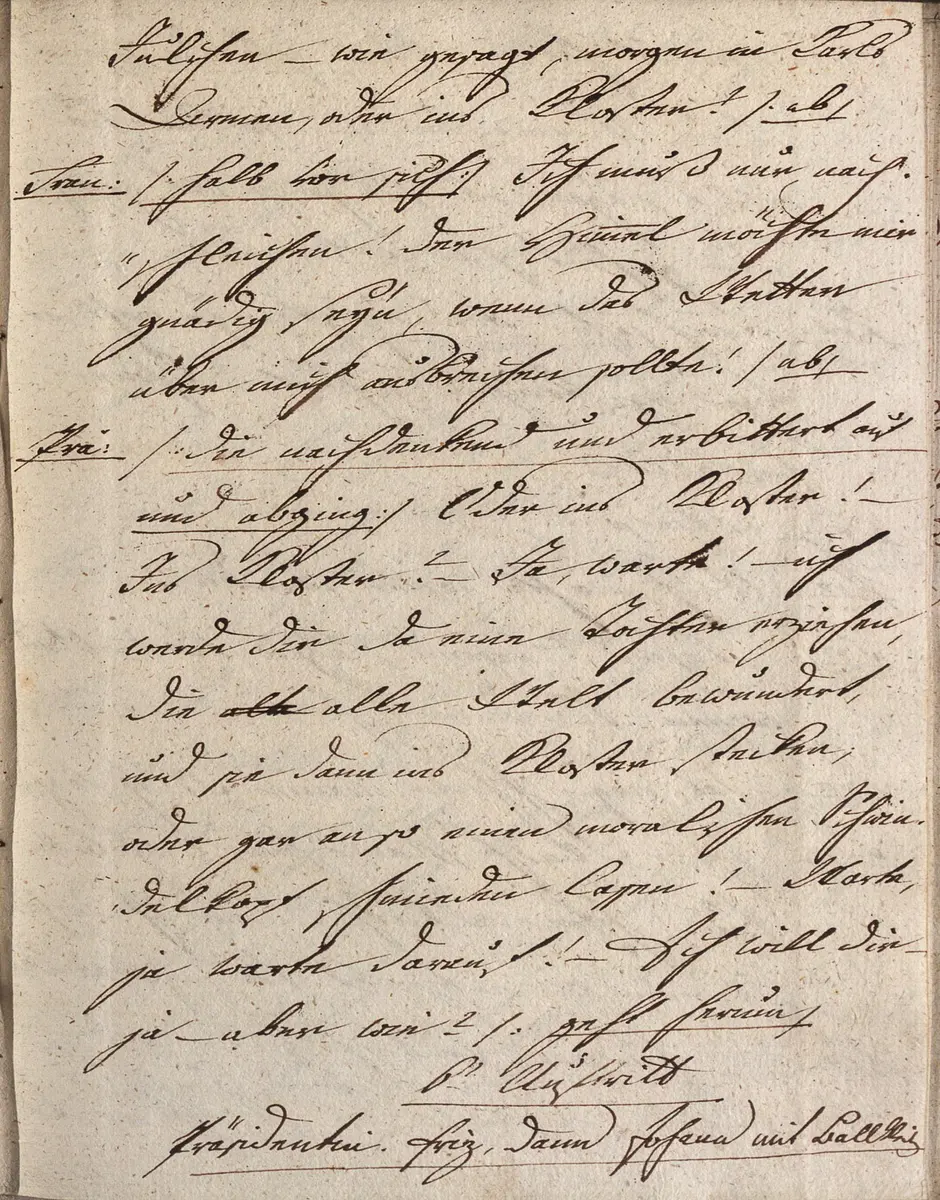 Julchen – wie gesagt, morgen in Karls
Armen, oder ins Kloster! /: ab /
Fran: /: halb vor sich :/ Ich muß nur nach-
schleichen! der Himmel möchte mir
gnädig seyn, wenn das Wetter
über mich ausbrechen sollte! / ab /
Prä: /: die nachdenkend und erbittert auf
und abging :/ Oder ins Kloster! –
Ins Kloster? – Ja, warte! – ich
werde dir da eine Tochter erziehen,
die alle Welt bewundert,
und sie dann ins Kloster stecken,
oder gar an so einen moralischen Schwin-
delkopf schmieden lassen! – Warte,
ja warte darauf! – Ich will dir –
ja – aber wie? /: geht herum /
6r Auftritt
Präsidentin. Friz, dann Johann mit